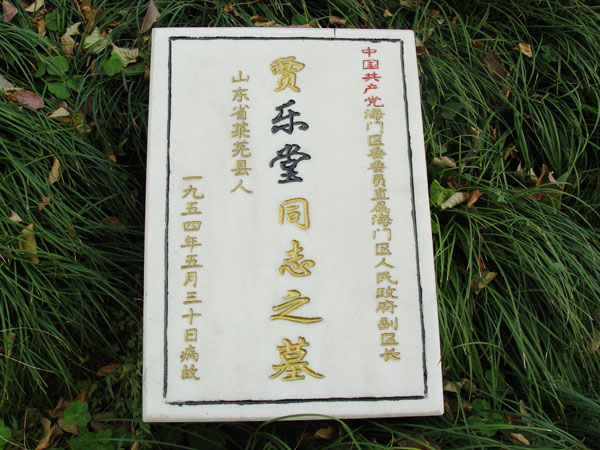 中国共产党海门区委委员直属海门区人民政府副区长
贾乐堂同志之墓
山东省莱芜县人
一九五四年五月三十日病故